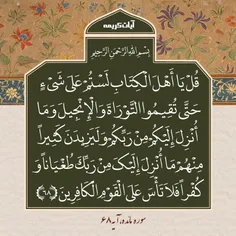 آیات کریمه
بِسْمِ اللَّهِ الرَّحْمَنِ الرَّحِيمِ
قُلْ يَا أَهْلَ الْكِتَابِ لَسْتُمْ عَلَى شَيْءٍ
حَتَّى تُقِيمُوا التَّوْرَاةَ وَالْإِنْجِيلَ وَمَا
أُنْزِلَ إِلَيْكُمْ مِنْ رَبِّكُمْ وَلَيَزِيدَنَّ كَثِيرًا
مِنْهُمْ مَا أُنْزِلَ إِلَيْكَ مِنْ رَبِّكَ طُغْيَانًا وَ
كُفْرًا فَلَا تَأْسَ عَلَى الْقَوْمِ الْكَافِرِينَ ۶۸
سوره مائده، آیه ۶۸